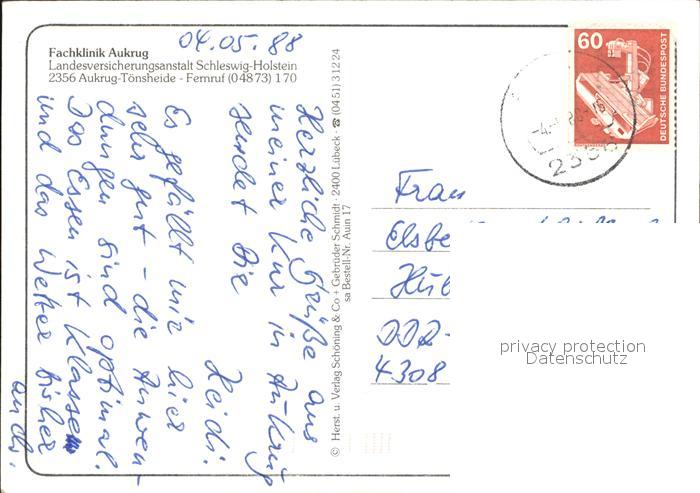 Fachklinik Aukrug
Landesversicherungsanstalt Schleswig-Holstein
2356 Aukrug-Tönsheide - Fernruf (04873) 170
04.05.88
Herzliche Grüße aus
meiner Kur in Aukrug
sendet Die
Heidi.
Es gefällt mir hier
sehr gut - die Anwen-
dungen sind optimal.
Das Essen ist Klasse
und das Wetter bisher
auch.
© Herst. u. Verlag Schöning & Co + Gebrüder Schmidt · 2400 Lübeck · ☎ (0451) 31224
sa Bestell-Nr. Aun 17
60
DEUTSCHE BUNDESPOST
Frau
Elsbe
Hüb
DDR-
4308
privacy protection
Datenschutz